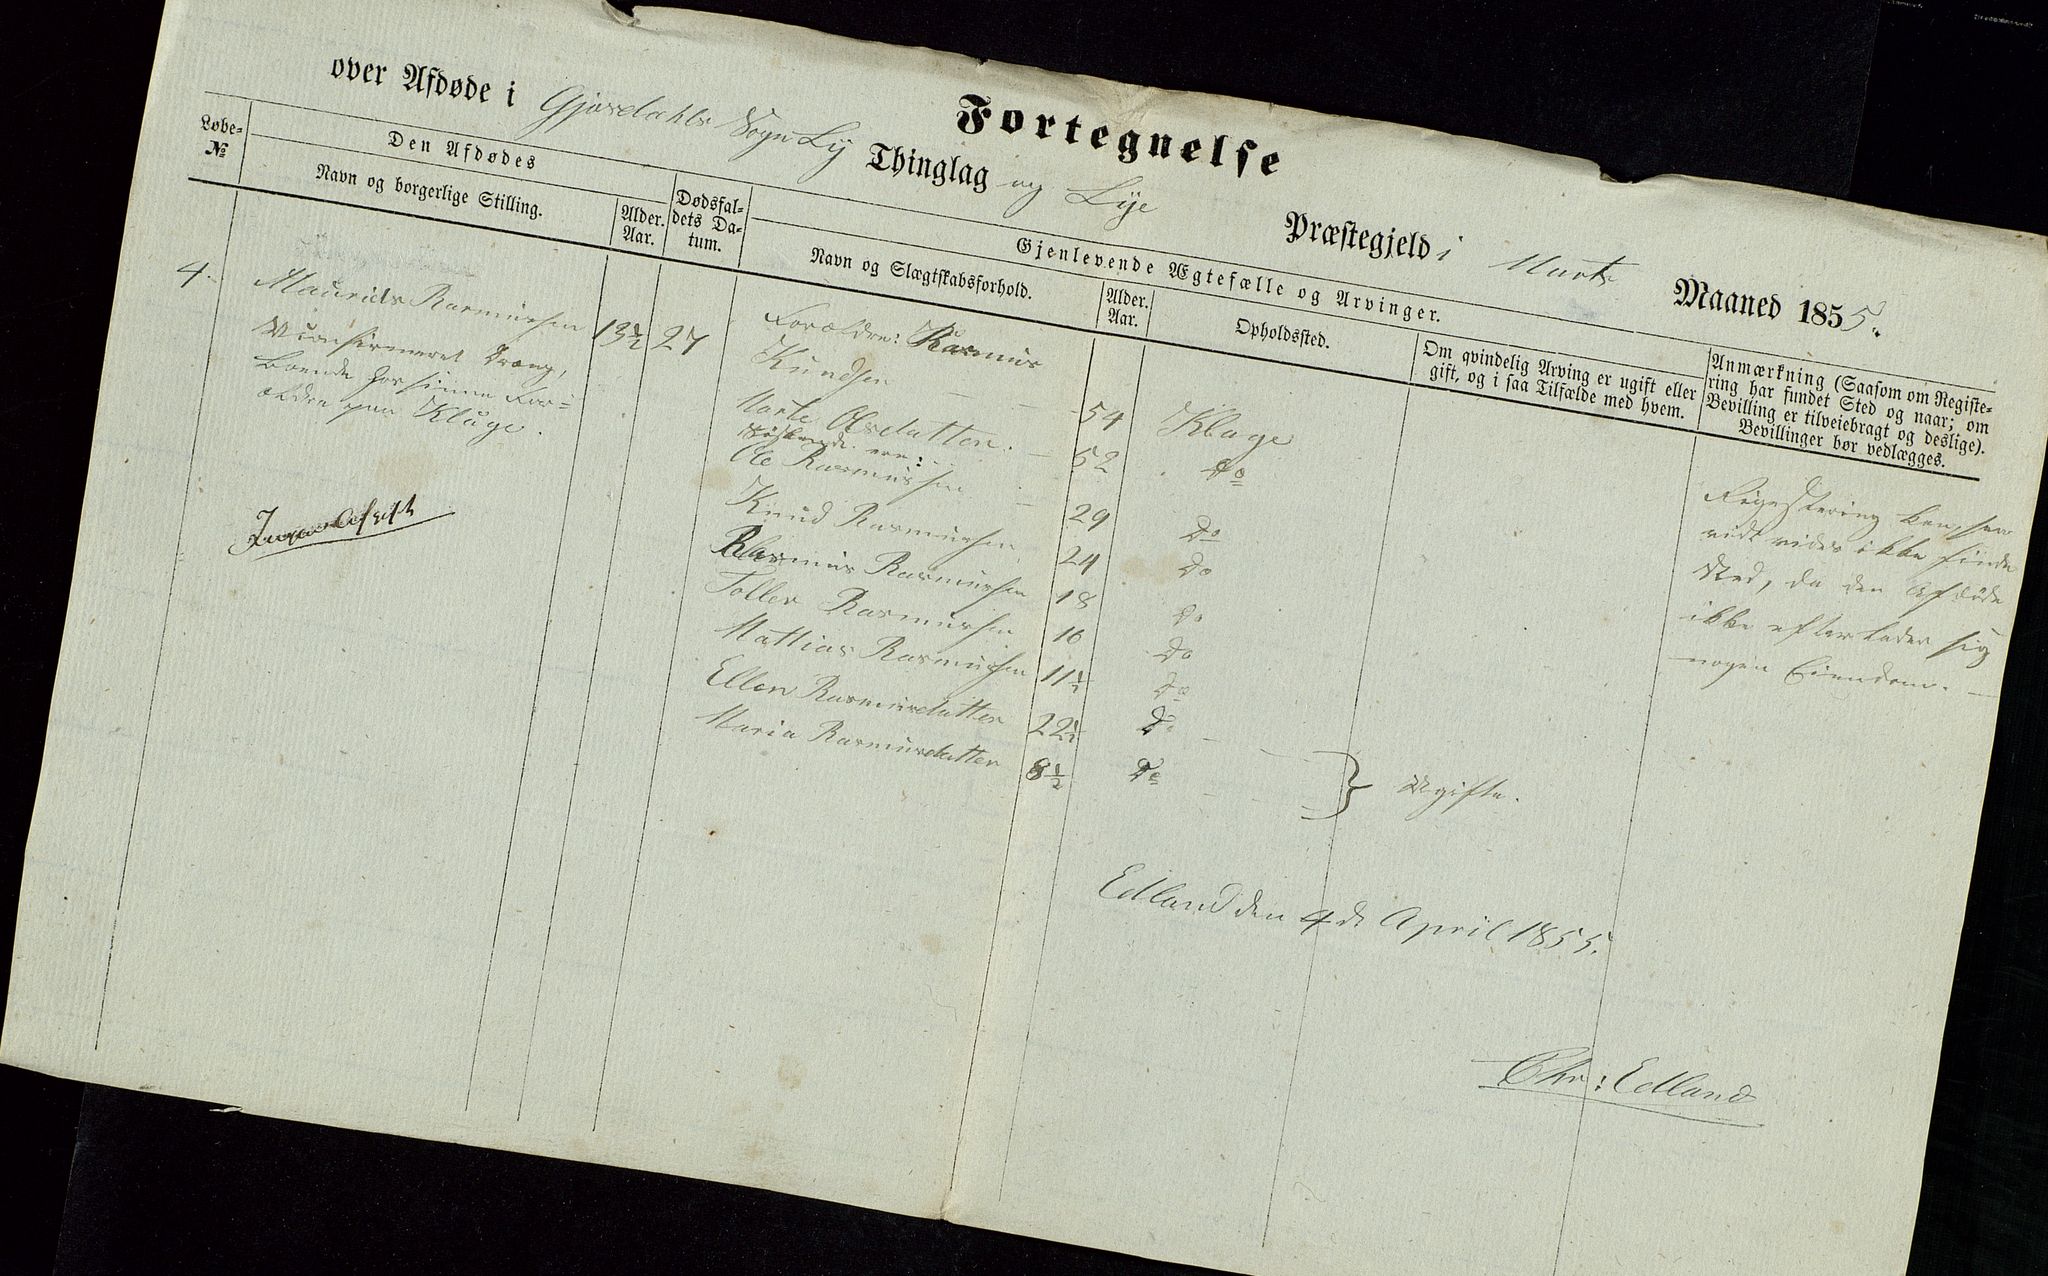 Fortegnelse
over Afdøde i Gjæsdahls Sogn Ly Thinglag og Lye Præstegjeld i Marts Maaned 1855.
Løbe-
№
Den Afdødes
Navn og borgerlige Stilling.
Alder.
Aar.
Dødsfal-
dets Da-
tum.
Gjenlevende Ægtefælle og Arvinger.
Navn og Slægtskabsforhold.
Alder.
Aar.
Opholdssted.
Om qvindelig Arving er ugift eller
gift, og i saa Tilfælde med hvem.
Anmærkning (Saasom om Registe-
ring har fundet Sted og naar; om
Bevilling er tilveiebragt og deslige).
Bevillinger bør vedlægges.
4.
Maurids Rasmussen
Uconfirmeret Dreng,
boende hos sinne For-
ældre paa Kluge.
13½
27
Forældre: Rasmus
Knudsen 54 Kluge
Marte Olsdatter. 52 Do
Søskende ere:
Ole Rasmussen 29 Do
Knud Rasmussen 24 Do
Rasmus Rasmussen 18 Do
Toller Rasmussen 16 Do
Mattias Rasmussen 11½ Do
Ellen Rasmusdatter 22½ Do
Maria Rasmusdatter 8½ Do
} Ugifte.
Regestering kan, saa
vidt vides ikke finde
Sted, da den Afdøde
ikke efterlader sig
nogen Eiendom.
Edland den 4de April 1855.
Chr: Edland